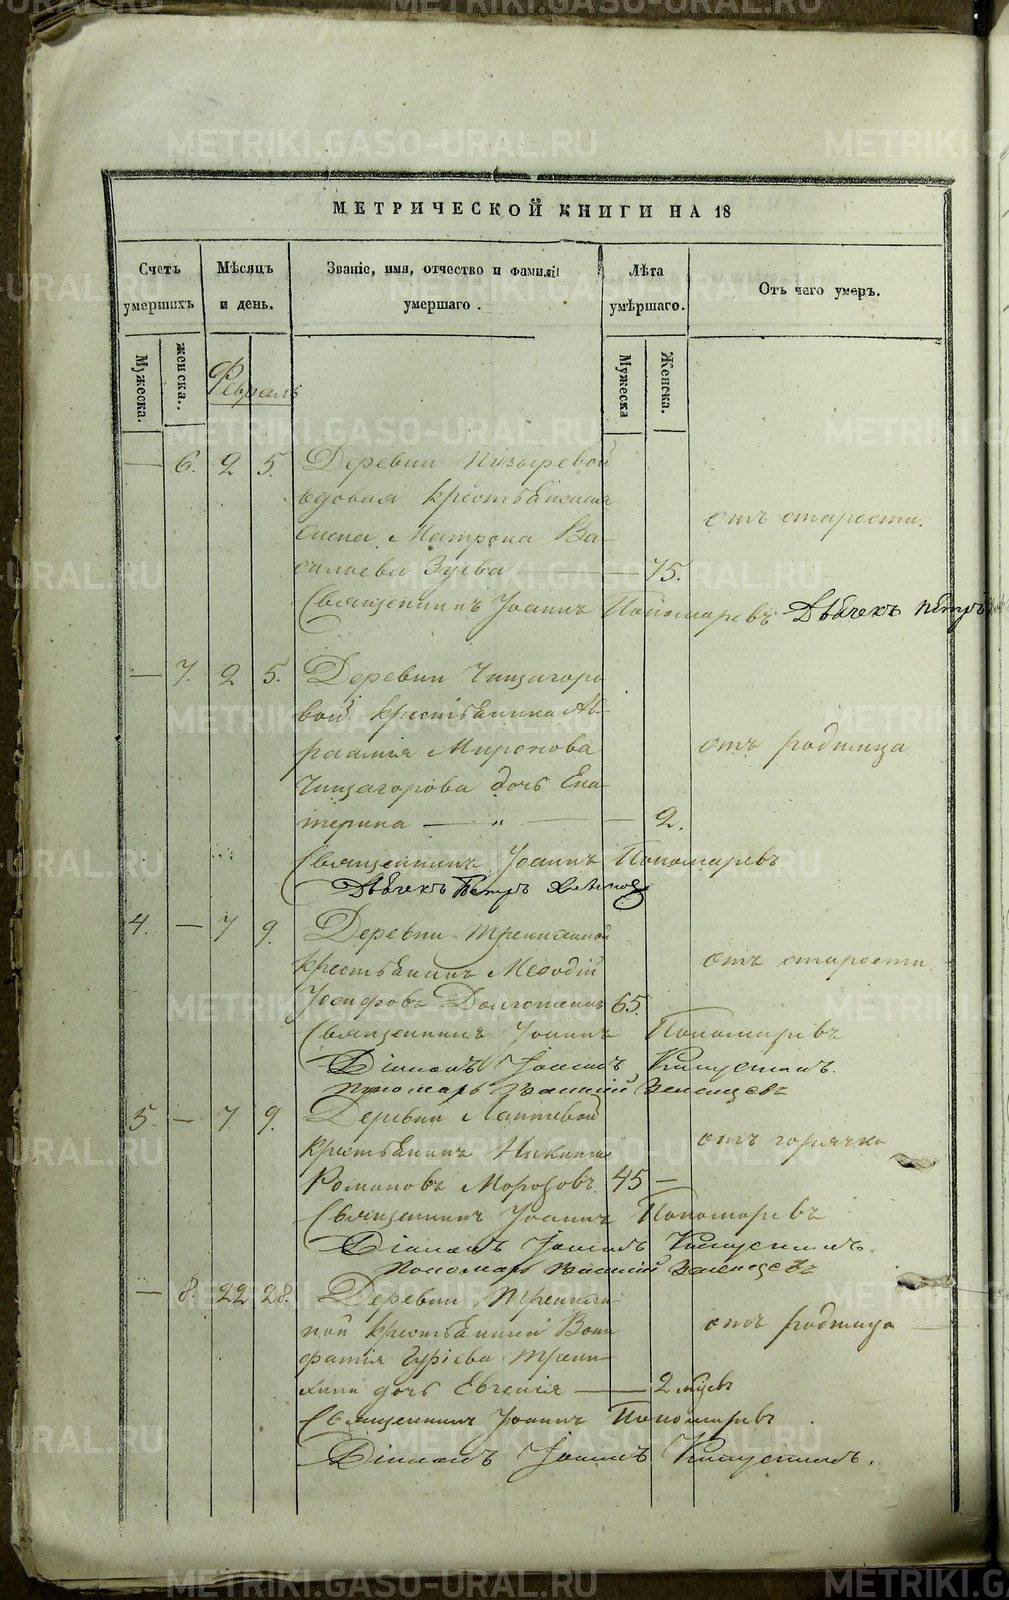 МЕТРИЧЕСКОЙ КНИГИ НА 18
Счетъ умершихъ
Мѣсяцъ и день.
Званіе, имя, отчество и фамилія умершаго.
Лѣта умѣршаго.
Отъ чего умеръ.
Мужеска.
женска.
Мужеска
Женска.
Февраль
— 6. 2 5. Деревни Пузыревой
вдовая крестьянская
жена Матрона Ва-
сильева Зуева — 75. отъ старости.
Священникъ Іоаннъ Пономаревъ Дьячекъ Петръ
— 7. 2 5. Деревни Чищагоро
вой крестьянина Ав-
раамія Миронова отъ родимца
Чищагорова дочь Ека-
терина — " — 2.
Священникъ Іоаннъ Пономаревъ
Дьячекъ Петръ
4. — 7 9. Деревни Трениханой
крестьянинъ Меѳодій отъ старости.
Іосифовъ 65.
Священникъ Іоаннъ Пономаревъ
Діаконъ Іоаннъ
Пономарь
5. — 7 9. Деревни Лаптевой
крестьянинъ Никита отъ горячки
Романовъ Морозовъ. 45 —
Священникъ Іоаннъ Пономаревъ
Діаконъ Іоаннъ
Пономарь
— 8. 22 28. Деревни Тренихи-
ной крестьянина Вони отъ родимца
фатія Гурієва Трени
хина дочь Евгенія — 2 мѣсяцъ
Священникъ Іоаннъ Пономаревъ
Діаконъ Іоаннъ
METRIKI.GASO-URAL.RU